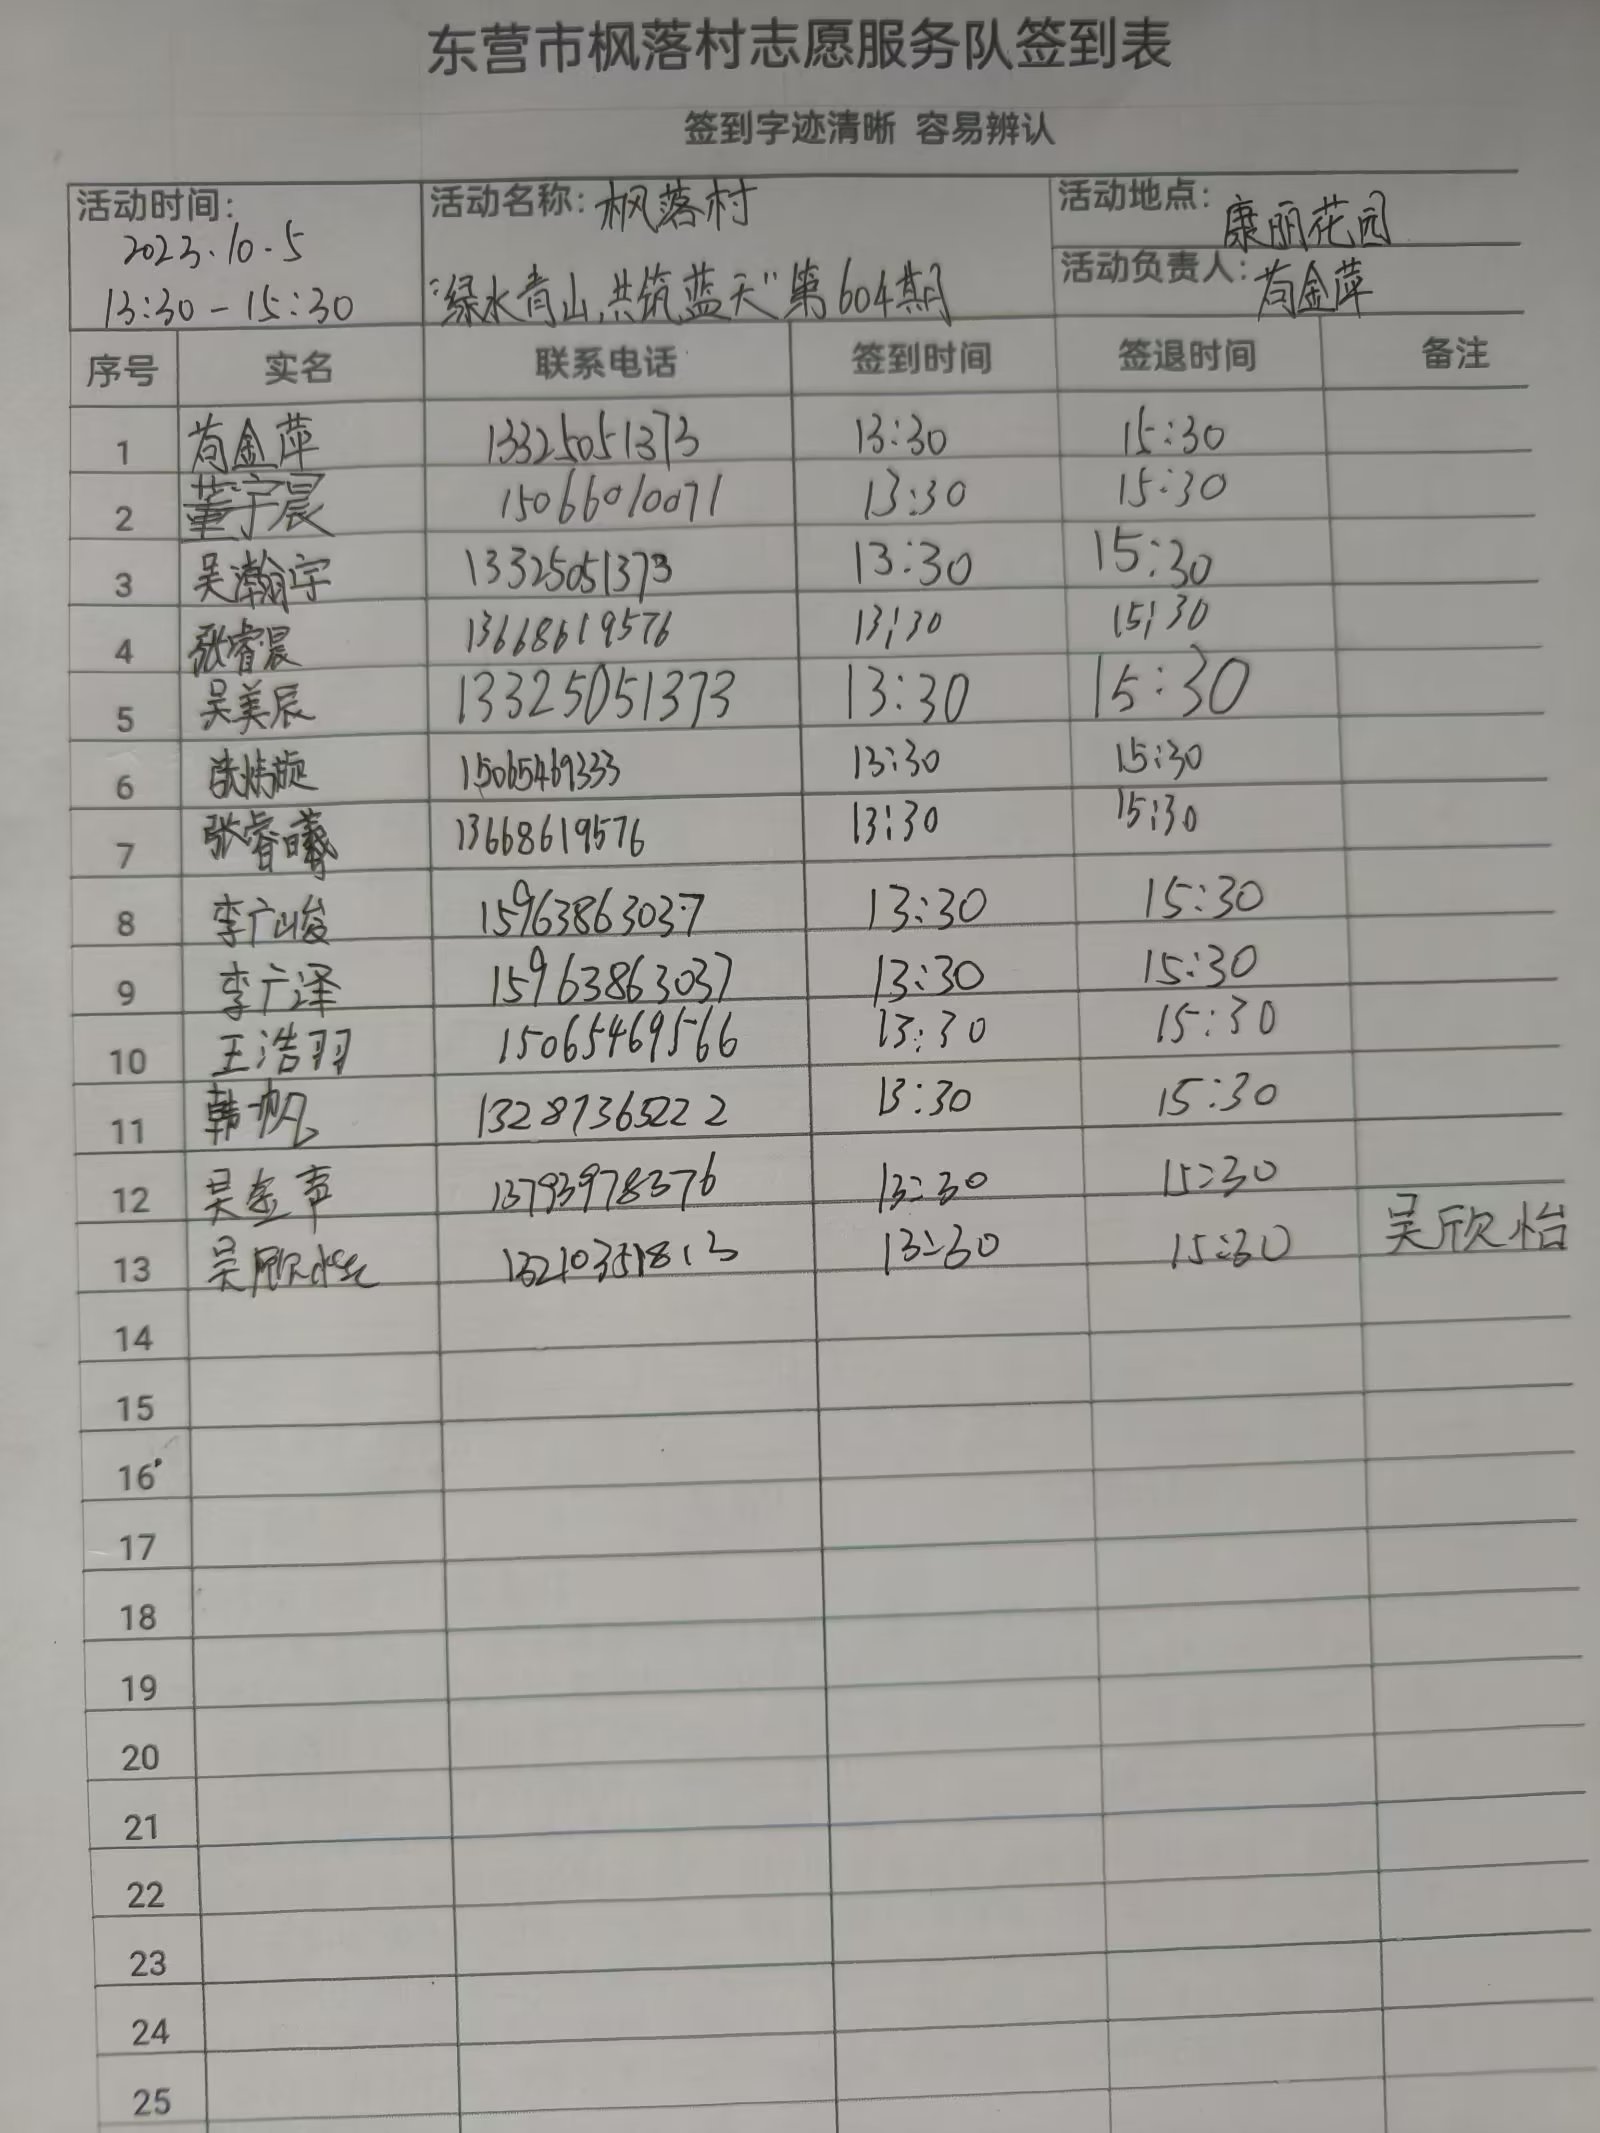 东营市枫落村志愿服务队签到表
签到字迹清晰 容易辨认
活动时间: 2023.10.5 13:30-15:30
活动名称: 枫落村 "绿水青山,共筑蓝天"第604期
活动地点: 康丽花园
活动负责人: 苟金萍
序号 实名 联系电话 签到时间 签退时间 备注
1 苟金萍 13325051373 13:30 15:30
2 董宇晨 15066010071 13:30 15:30
3 吴瀚宇 13325051373 13:30 15:30
4 张睿晨 13668619576 13:30 15:30
5 吴美辰 13325051373 13:30 15:30
6 15065469333 13:30 15:30
7 张睿曦 13668619576 13:30 15:30
8 李广峻 15963863037 13:30 15:30
9 李广泽 15963863037 13:30 15:30
10 王浩羽 15065469566 13:30 15:30
11 韩一帆 13287365222 13:30 15:30
12 吴金声 13793978376 13:30 15:30
13 吴欣怡 13210351813 13:30 15:30 吴欣怡
14
15
16
17
18
19
20
21
22
23
24
25